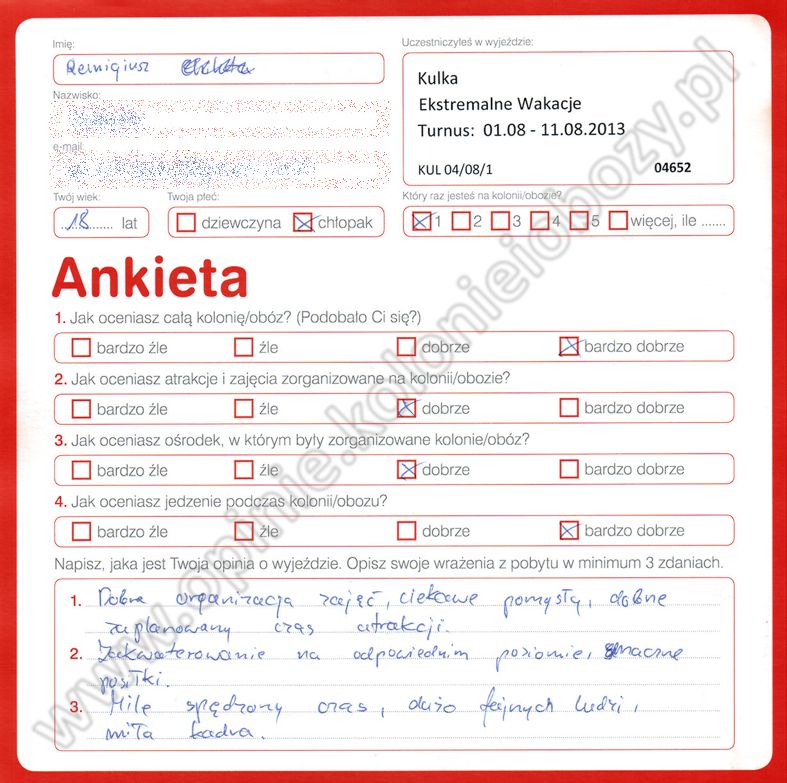 Imię:
Remigiusz
Nazwisko:
e-mail:
Twój wiek:
18 lat
Twoja płeć:
dziewczyna chłopak
Uczestniczyłeś w wyjeździe:
Kulka
Ekstremalne Wakacje
Turnus: 01.08 - 11.08.2013
KUL 04/08/1 04652
Który raz jesteś na kolonii/obozie?
1 2 3 4 5 więcej, ile .......
Ankieta
1. Jak oceniasz całą kolonię/obóz? (Podobało Ci się?)
bardzo źle źle dobrze bardzo dobrze
2. Jak oceniasz atrakcje i zajęcia zorganizowane na kolonii/obozie?
bardzo źle źle dobrze bardzo dobrze
3. Jak oceniasz ośrodek, w którym były zorganizowane kolonie/obóz?
bardzo źle źle dobrze bardzo dobrze
4. Jak oceniasz jedzenie podczas kolonii/obozu?
bardzo źle źle dobrze bardzo dobrze
Napisz, jaka jest Twoja opinia o wyjeździe. Opisz swoje wrażenia z pobytu w minimum 3 zdaniach.
1. Dobra organizacja zajęć, ciekawe pomysły, dobrze
zaplanowany czas atrakcji.
2. Zakwaterowanie na odpowiednim poziomie, smaczne
posiłki.
3. Mile spędzony czas, dużo fajnych ludzi,
miła kadra.
www.opinie.kolonieiobozy.pl